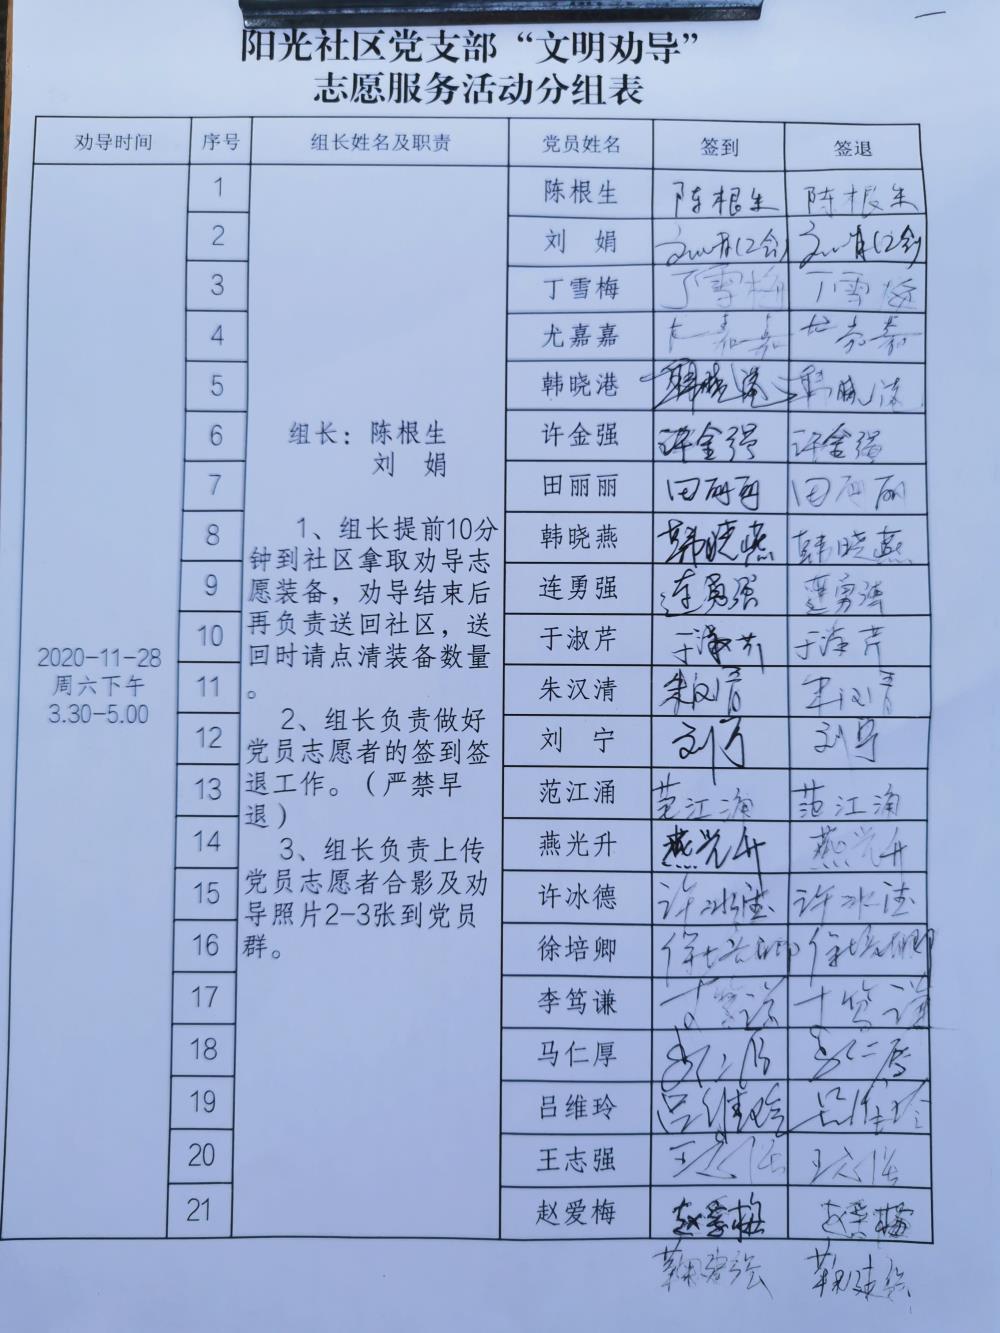 阳光社区党支部“文明劝导”
志愿服务活动分组表
劝导时间 序号 组长姓名及职责 党员姓名 签到 签退
2020-11-28
周六下午
3.30-5.00
组长：陈根生
刘 娟
1、组长提前10分
钟到社区拿取劝导志
愿装备，劝导结束后
再负责送回社区，送
回时请点清装备数量
。
2、组长负责做好
党员志愿者的签到签
退工作。（严禁早
退）
3、组长负责上传
党员志愿者合影及劝
导照片2-3张到党员
群。
1 陈根生 陈根生 陈根生
2 刘 娟 刘娟(乙会) 刘娟(乙会)
3 丁雪梅 丁雪梅 丁雪梅
4 尤嘉嘉 尤嘉嘉 尤嘉嘉
5 韩晓港 韩晓港 韩晓港
6 许金强 许金强 许金强
7 田丽丽 田丽丽 田丽丽
8 韩晓燕 韩晓燕 韩晓燕
9 连勇强 连勇强 连勇强
10 于淑芹 于淑芹 于淑芹
11 朱汉清 朱汉清 朱汉清
12 刘 宁 刘宁 刘宁
13 范江涌 范江涌 范江涌
14 燕光升 燕光升 燕光升
15 许冰德 许冰德 许冰德
16 徐培卿 徐培卿 徐培卿
17 李笃谦 李笃谦 李笃谦
18 马仁厚 马仁厚 马仁厚
19 吕维玲 吕维玲 吕维玲
20 王志强 王志强 王志强
21 赵爱梅 赵爱梅 赵爱梅